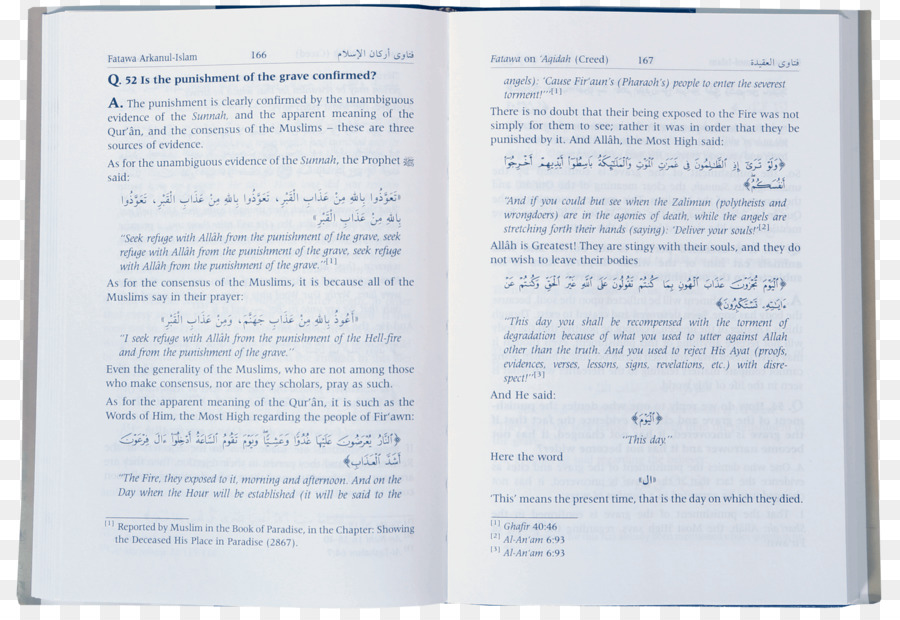 Fatawa Arkanul-Islam 166 فتاوى أركان الإسلام
Q. 52 Is the punishment of the grave confirmed?
A. The punishment is clearly confirmed by the unambiguous
evidence of the Sunnah, and the apparent meaning of the
Qur'ân, and the consensus of the Muslims – these are three
sources of evidence.
As for the unambiguous evidence of the Sunnah, the Prophet ﷺ
said:
«تَعَوَّذُوا بِاللهِ مِنْ عَذَابِ الْقَبْرِ، تَعَوَّذُوا بِاللهِ مِنْ عَذَابِ الْقَبْرِ، تَعَوَّذُوا
بِاللهِ مِنْ عَذَابِ الْقَبْرِ»
"Seek refuge with Allâh from the punishment of the grave, seek
refuge with Allâh from the punishment of the grave, seek refuge
with Allâh from the punishment of the grave."[1]
As for the consensus of the Muslims, it is because all of the
Muslims say in their prayer:
«أَعُوذُ بِاللهِ مِنْ عَذَابِ جَهَنَّمَ، وَمِنْ عَذَابِ الْقَبْرِ»
"I seek refuge with Allâh from the punishment of the Hell-fire
and from the punishment of the grave."
Even the generality of the Muslims, who are not among those
who make consensus, nor are they scholars, pray as such.
As for the apparent meaning of the Qur'ân, it is such as the
Words of Him, the Most High regarding the people of Fir'awn:
﴿النَّارُ يُعْرَضُونَ عَلَيْهَا غُدُوًّا وَعَشِيًّا وَيَوْمَ تَقُومُ السَّاعَةُ أَدْخِلُوٓا۟ ءَالَ فِرْعَوْنَ
أَشَدَّ الْعَذَابِ﴾
"The Fire, they exposed to it, morning and afternoon. And on the
Day when the Hour will be established (it will be said to the
[1] Reported by Muslim in the Book of Paradise, in the Chapter: Showing
the Deceased His Place in Paradise (2867).
Fatawa on 'Aqidah (Creed) 167 فتاوى العقيدة
angels): 'Cause Fir'aun's (Pharaoh's) people to enter the severest
torment!'"[1]
There is no doubt that their being exposed to the Fire was not
simply for them to see; rather it was in order that they be
punished by it. And Allâh, the Most High said:
﴿وَلَوْ تَرَىٰٓ إِذِ الظَّٰلِمُونَ فِى غَمَرَٰتِ الْمَوْتِ وَالْمَلَٰٓئِكَةُ بَاسِطُوٓا۟ أَيْدِيهِمْ أَخْرِجُوٓا۟
أَنفُسَكُمُ﴾
"And if you could but see when the Zalimun (polytheists and
wrongdoers) are in the agonies of death, while the angels are
stretching forth their hands (saying): 'Deliver your souls!'"[2]
Allâh is Greatest! They are stingy with their souls, and they do
not wish to leave their bodies
﴿الْيَوْمَ تُجْزَوْنَ عَذَابَ الْهُونِ بِمَا كُنتُمْ تَقُولُونَ عَلَى اللَّهِ غَيْرَ الْحَقِّ وَكُنتُمْ عَنْ
ءَايَٰتِهِۦ تَسْتَكْبِرُونَ﴾
"This day you shall be recompensed with the torment of
degradation because of what you used to utter against Allah
other than the truth. And you used to reject His Ayat (proofs,
evidences, verses, lessons, signs, revelations, etc.) with disre-
spect!"[3]
And He said:
﴿الْيَوْمَ﴾
"This day."
Here the word
«ال»
'This' means the present time, that is the day on which they died.
[1] Ghafir 40:46
[2] Al-An'am 6:93
[3] Al-An'am 6:93